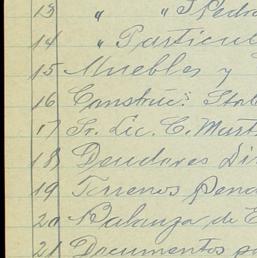 13 " " J. Pedra
14 " Particul
15 Muebles y
16 Construc.
17 Sr. Lic. C. Mart
18 Deudores Di
19 Terrenos
20 Balanza de E
21 Documentos po